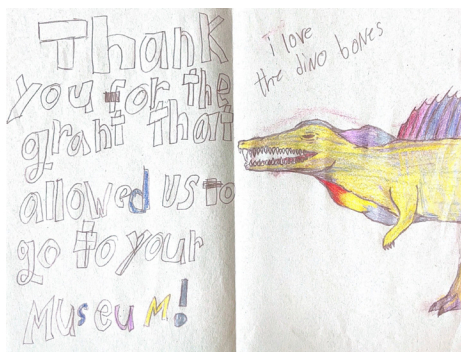 Thank
you for the
grant that
allowed us to
go to your
Museum!
i love
the dino bones